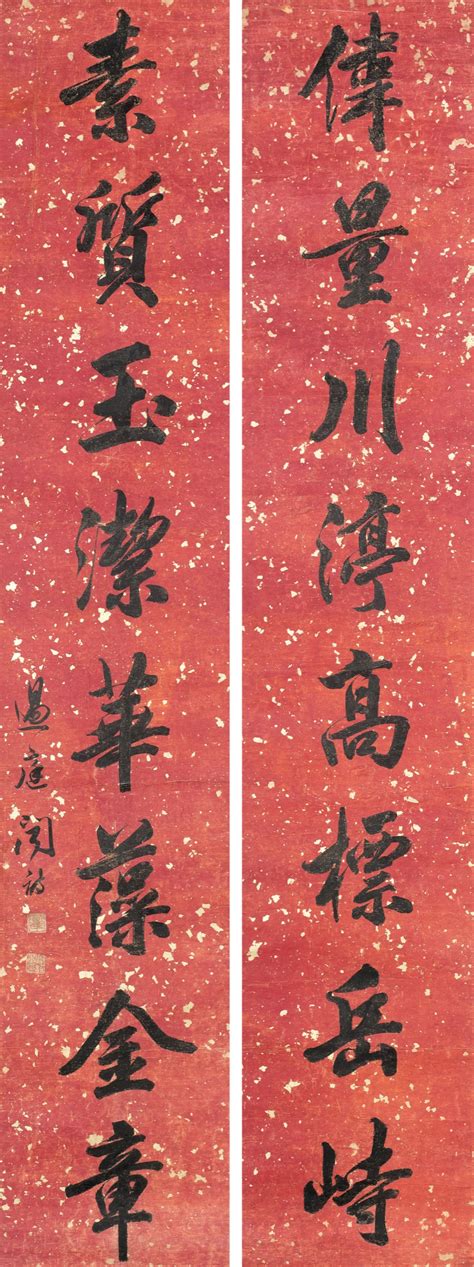 偉量川渟高標岳峙
素質玉潔華藻金章
庭